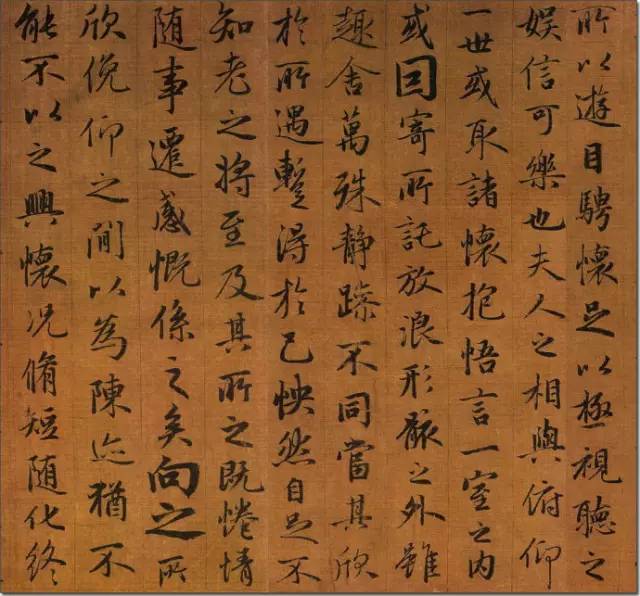 所以遊目騁懷足以極視聽之
娛信可樂也夫人之相與俯仰
一世或取諸懷抱悟言一室之內
或因寄所託放浪形骸之外雖
趣舍萬殊静躁不同當其欣
於所遇蹔得於己怏然自足不
知老之將至及其所之既惓情
随事遷感慨係之矣向之所
欣俛仰之閒以為陳迹猶不
能不以之興懷況脩短随化終